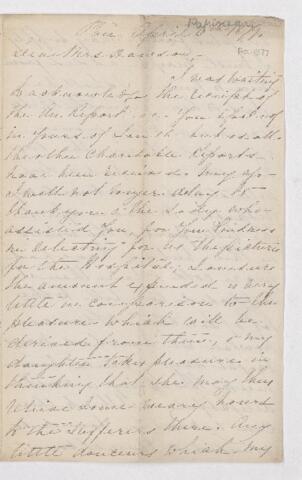 Papineau
Phil April 6th 1877.
Dear Mrs. Dawson
I was waiting
to acknowledge the receipt of
the An. Report &c. you speak of
in yours of but as all
the other Charitable Reports
have been received long ago
I will not longer delay to
thank you & the Lady who
assisted you, for your kindness
in selecting for us the pictures
for the Hospital; I am sure
the amount expended is very
little in comparison to the
pleasure which will be
derived from them, & my
daughter takes pleasure in
thinking that she may thus
relieve some weary hours
to the sufferers there. Any
little douceurs which my